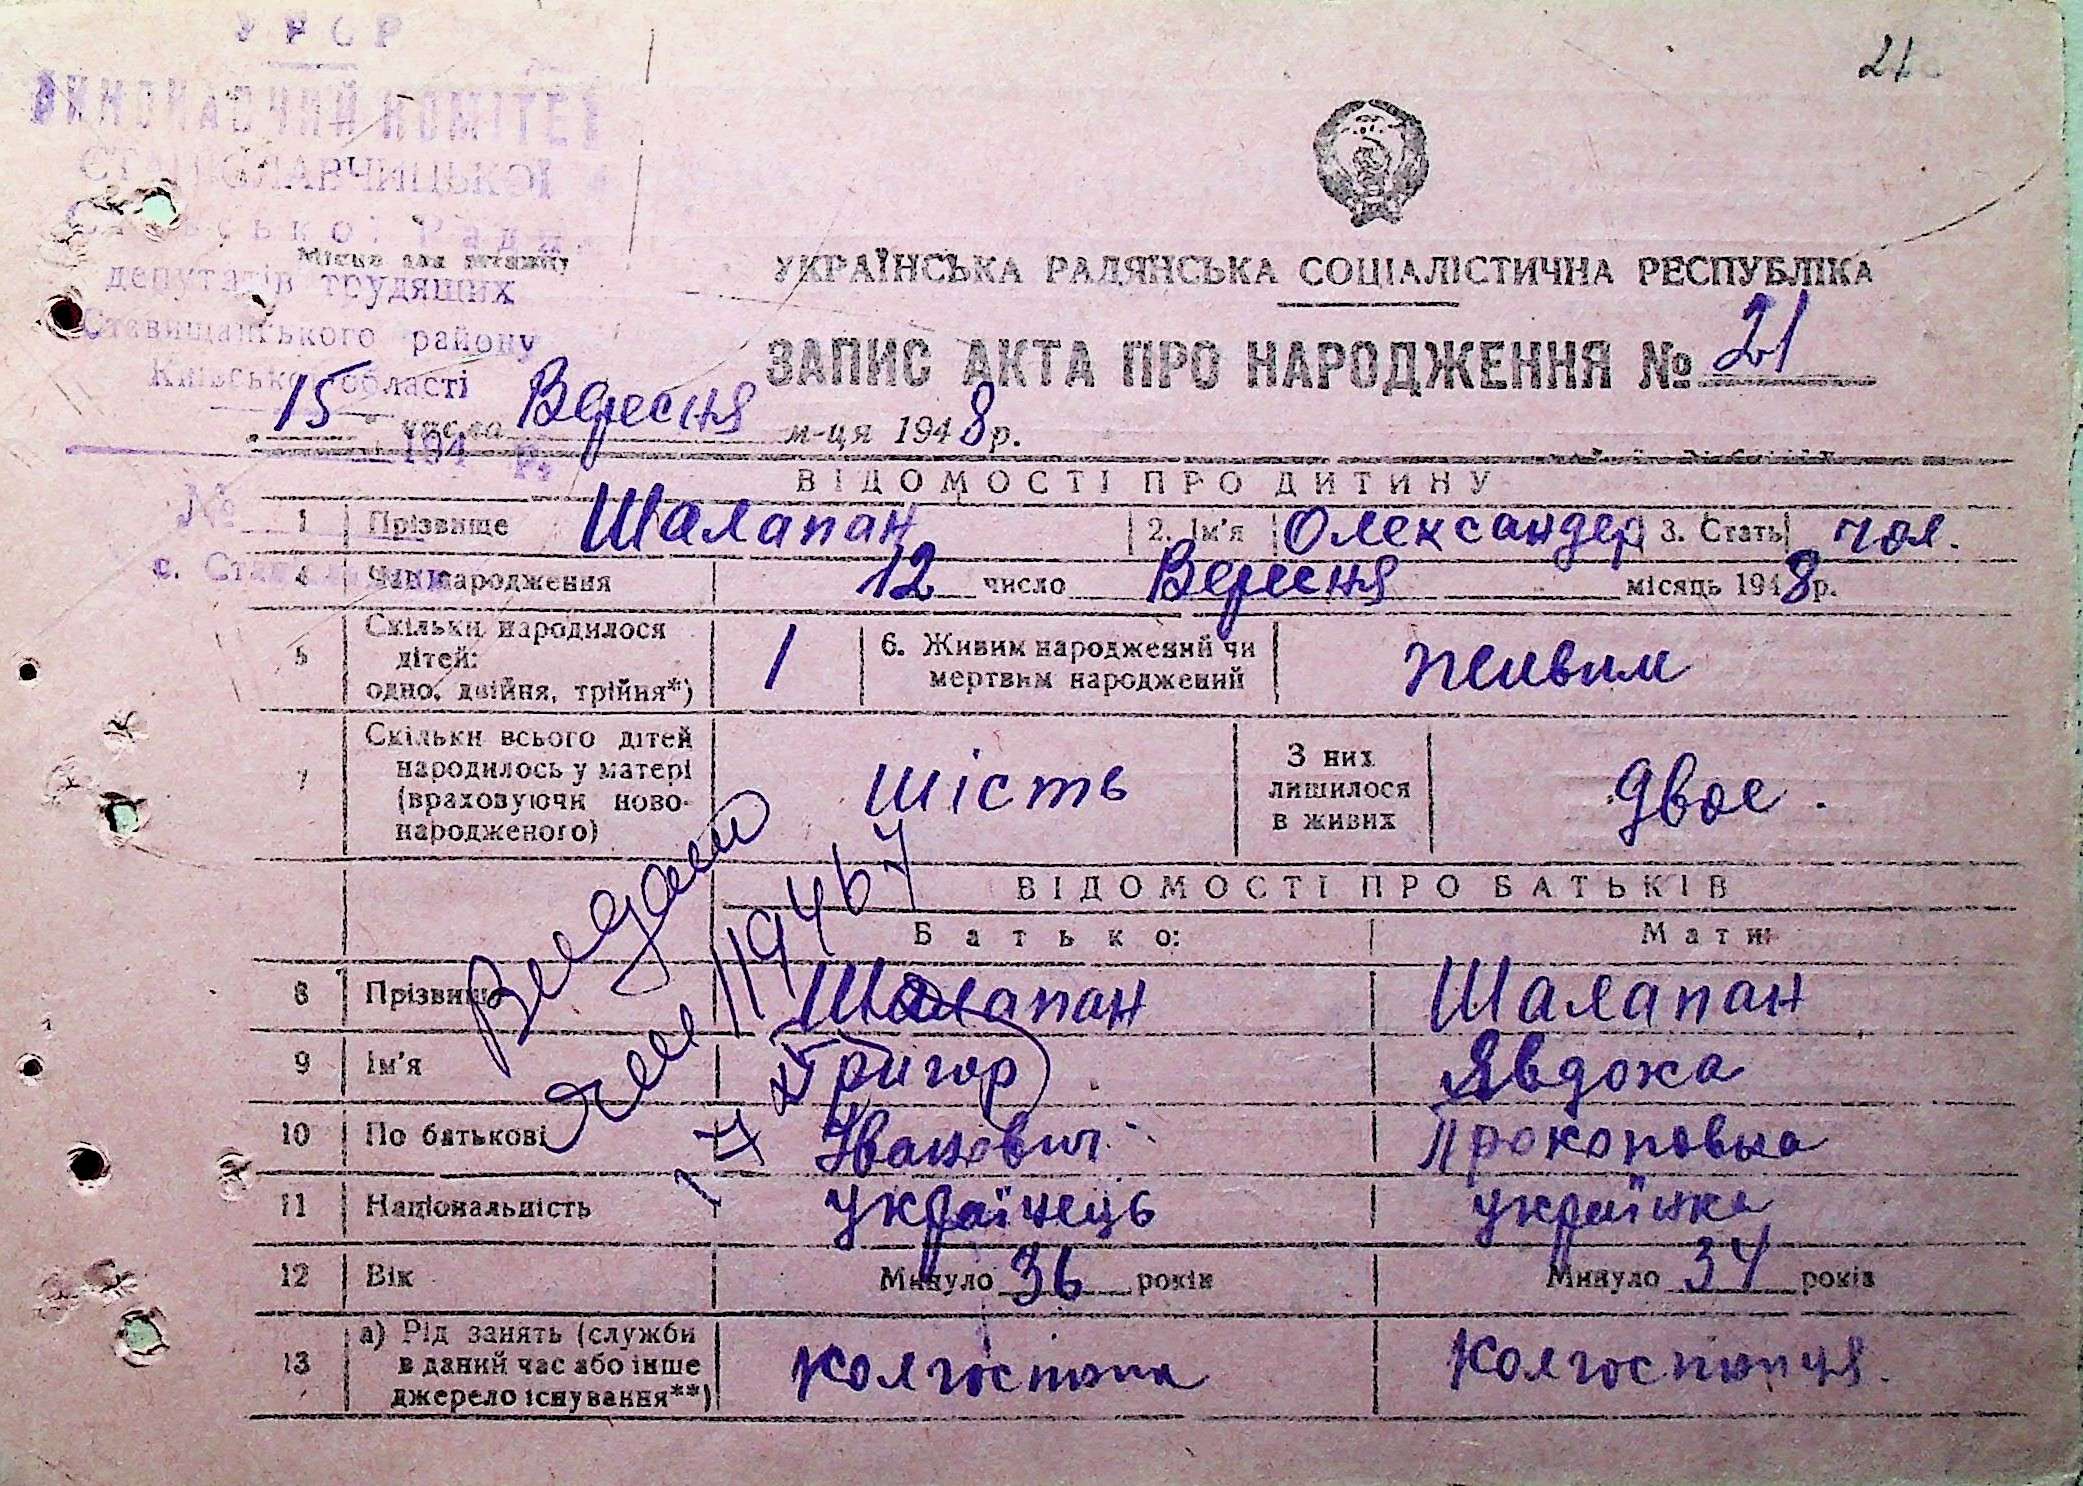 У Р С Р
ВИКОНАВЧИЙ КОМІТЕТ
СТАНІСЛАВЧИЦЬКОЇ
Сільської Ради
Місце для штампу
депутатів трудящих
Ставищанського району
Київської області
194 р.
№
с.
21
УКРАЇНСЬКА РАДЯНСЬКА СОЦІАЛІСТИЧНА РЕСПУБЛІКА
ЗАПИС АКТА ПРО НАРОДЖЕННЯ № 21
„15" числа Вересня м-ця 1948 р.
ВІДОМОСТІ ПРО ДИТИНУ
1 Прізвище Шалапан 2. Ім'я Олександер 3. Стать чол.
4 Час народження 12 число Вересня місяць 1948 р.
5 Скільки народилося дітей: одно, двійня, трійня*) 1 6. Живим народжений чи мертвим народжений живим
7 Скільки всього дітей народилось у матері (враховуючи новонародженого) шість З них лишилося в живих двое.
ВІДОМОСТІ ПРО БАТЬКІВ
Батько: Мати:
8 Прізвище Шалапан Шалапан
9 Ім'я Григор Явдоха
10 По батькові Иванович Прокоповна
11 Національність українець українка
12 Вік Минуло 36 років Минуло 34 років
13 а) Рід занять (служби в даний час або інше джерело існування**) колгоспник Колгоспниця.